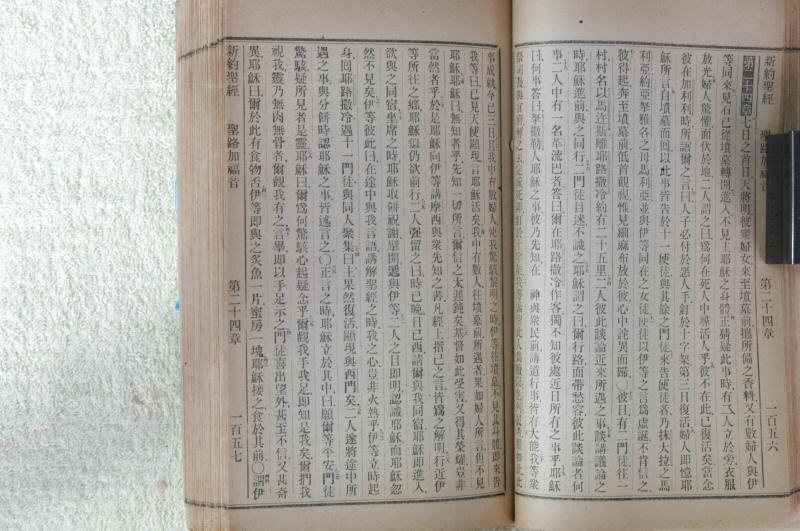 新約聖經　聖路加福音　第二十四章　一百五六
第二十四章 七日之首日天將明彼衆婦女來至墳墓前攜所備之香料又有數婦人與伊
等同來見石已從墳墓轉開進入不見主耶穌之身體正猜疑此事時有二人立於旁衣服
放光婦人驚懼面伏於地二人謂之曰爲何在死人中尋活人乎彼不在此已復活矣當念
彼在加利利時所語爾之言曰人子必付於惡人手釘於十字架第三日復活婦人即憶耶
穌所言自墳墓而回以此事皆告於十一使徒與其餘之門徒來告使徒者乃抹大拉之馬
利亞約亞拏雅各之母馬利亞並與伊等同在之女徒使徒以伊等之言爲虛誕不肯信之
彼得起奔至墳墓前低首觀視惟見細麻布放於彼心中詫異而歸○彼日有二門徒往一
村村名以馬迕斯離耶路撒冷約有二十五里二人彼此談論近來所遇之事談講議論之
時耶穌進前與之同行二門徒目迷不識之耶穌謂之曰爾行路面帶愁容彼此談論者何
事二人中有一名革流巴者答曰爾在耶路撒冷作客獨不知彼處近日所有之事乎耶穌
曰何事答曰拏撒勒人耶穌之事彼乃先知在　神與衆民前講道行事皆有大能我等衆
新約聖經　聖路加福音　第二十四章　一百五七
事成就今已三日且我中有數婦人使我驚駭黎明之時伊等往墳墓不見其身體即來告
我等曰已見天使顯現言耶穌活矣我中有數人往墳墓前所遇者果如婦人所言但不見
耶穌耶穌曰無知者乎先知一切所言爾信之太遲鈍矣基督如此受害又得其榮耀豈非
當然者乎於是耶穌向伊等講摩西與衆先知之書凡經上指己之言皆爲之解明行近伊
等所往之鄉耶穌似仍欲前行二人強留之曰時已晚日已西請爾與我同宿耶穌即進入
欲與之同宿坐席之時耶穌取餅祝謝擘開遞與伊等二人之目即明認識耶穌而耶穌忽
然不見矣伊等彼此曰在途中與我言語講解聖經之時我之心豈非火熱乎伊等立時起
身回耶路撒冷遇十一門徒與同人聚集曰主果然復活顯現與西門矣二人遂將途中所
遇之事與分餅時認耶穌之事皆述言之○正言之時耶穌立於其中曰願爾等平安門徒
驚駭疑所見者是靈耶穌曰爾爲何驚駭心起疑念乎爾觀我手我足即知是我矣爾捫我
視我靈乃無肉無骨者爾觀我有之言畢即以手足示之門徒喜出望外甚至不信又甚奇
異耶穌曰爾於此有食物否伊等即與之炙魚一片蜜房一塊耶穌接之食於其前○謂伊